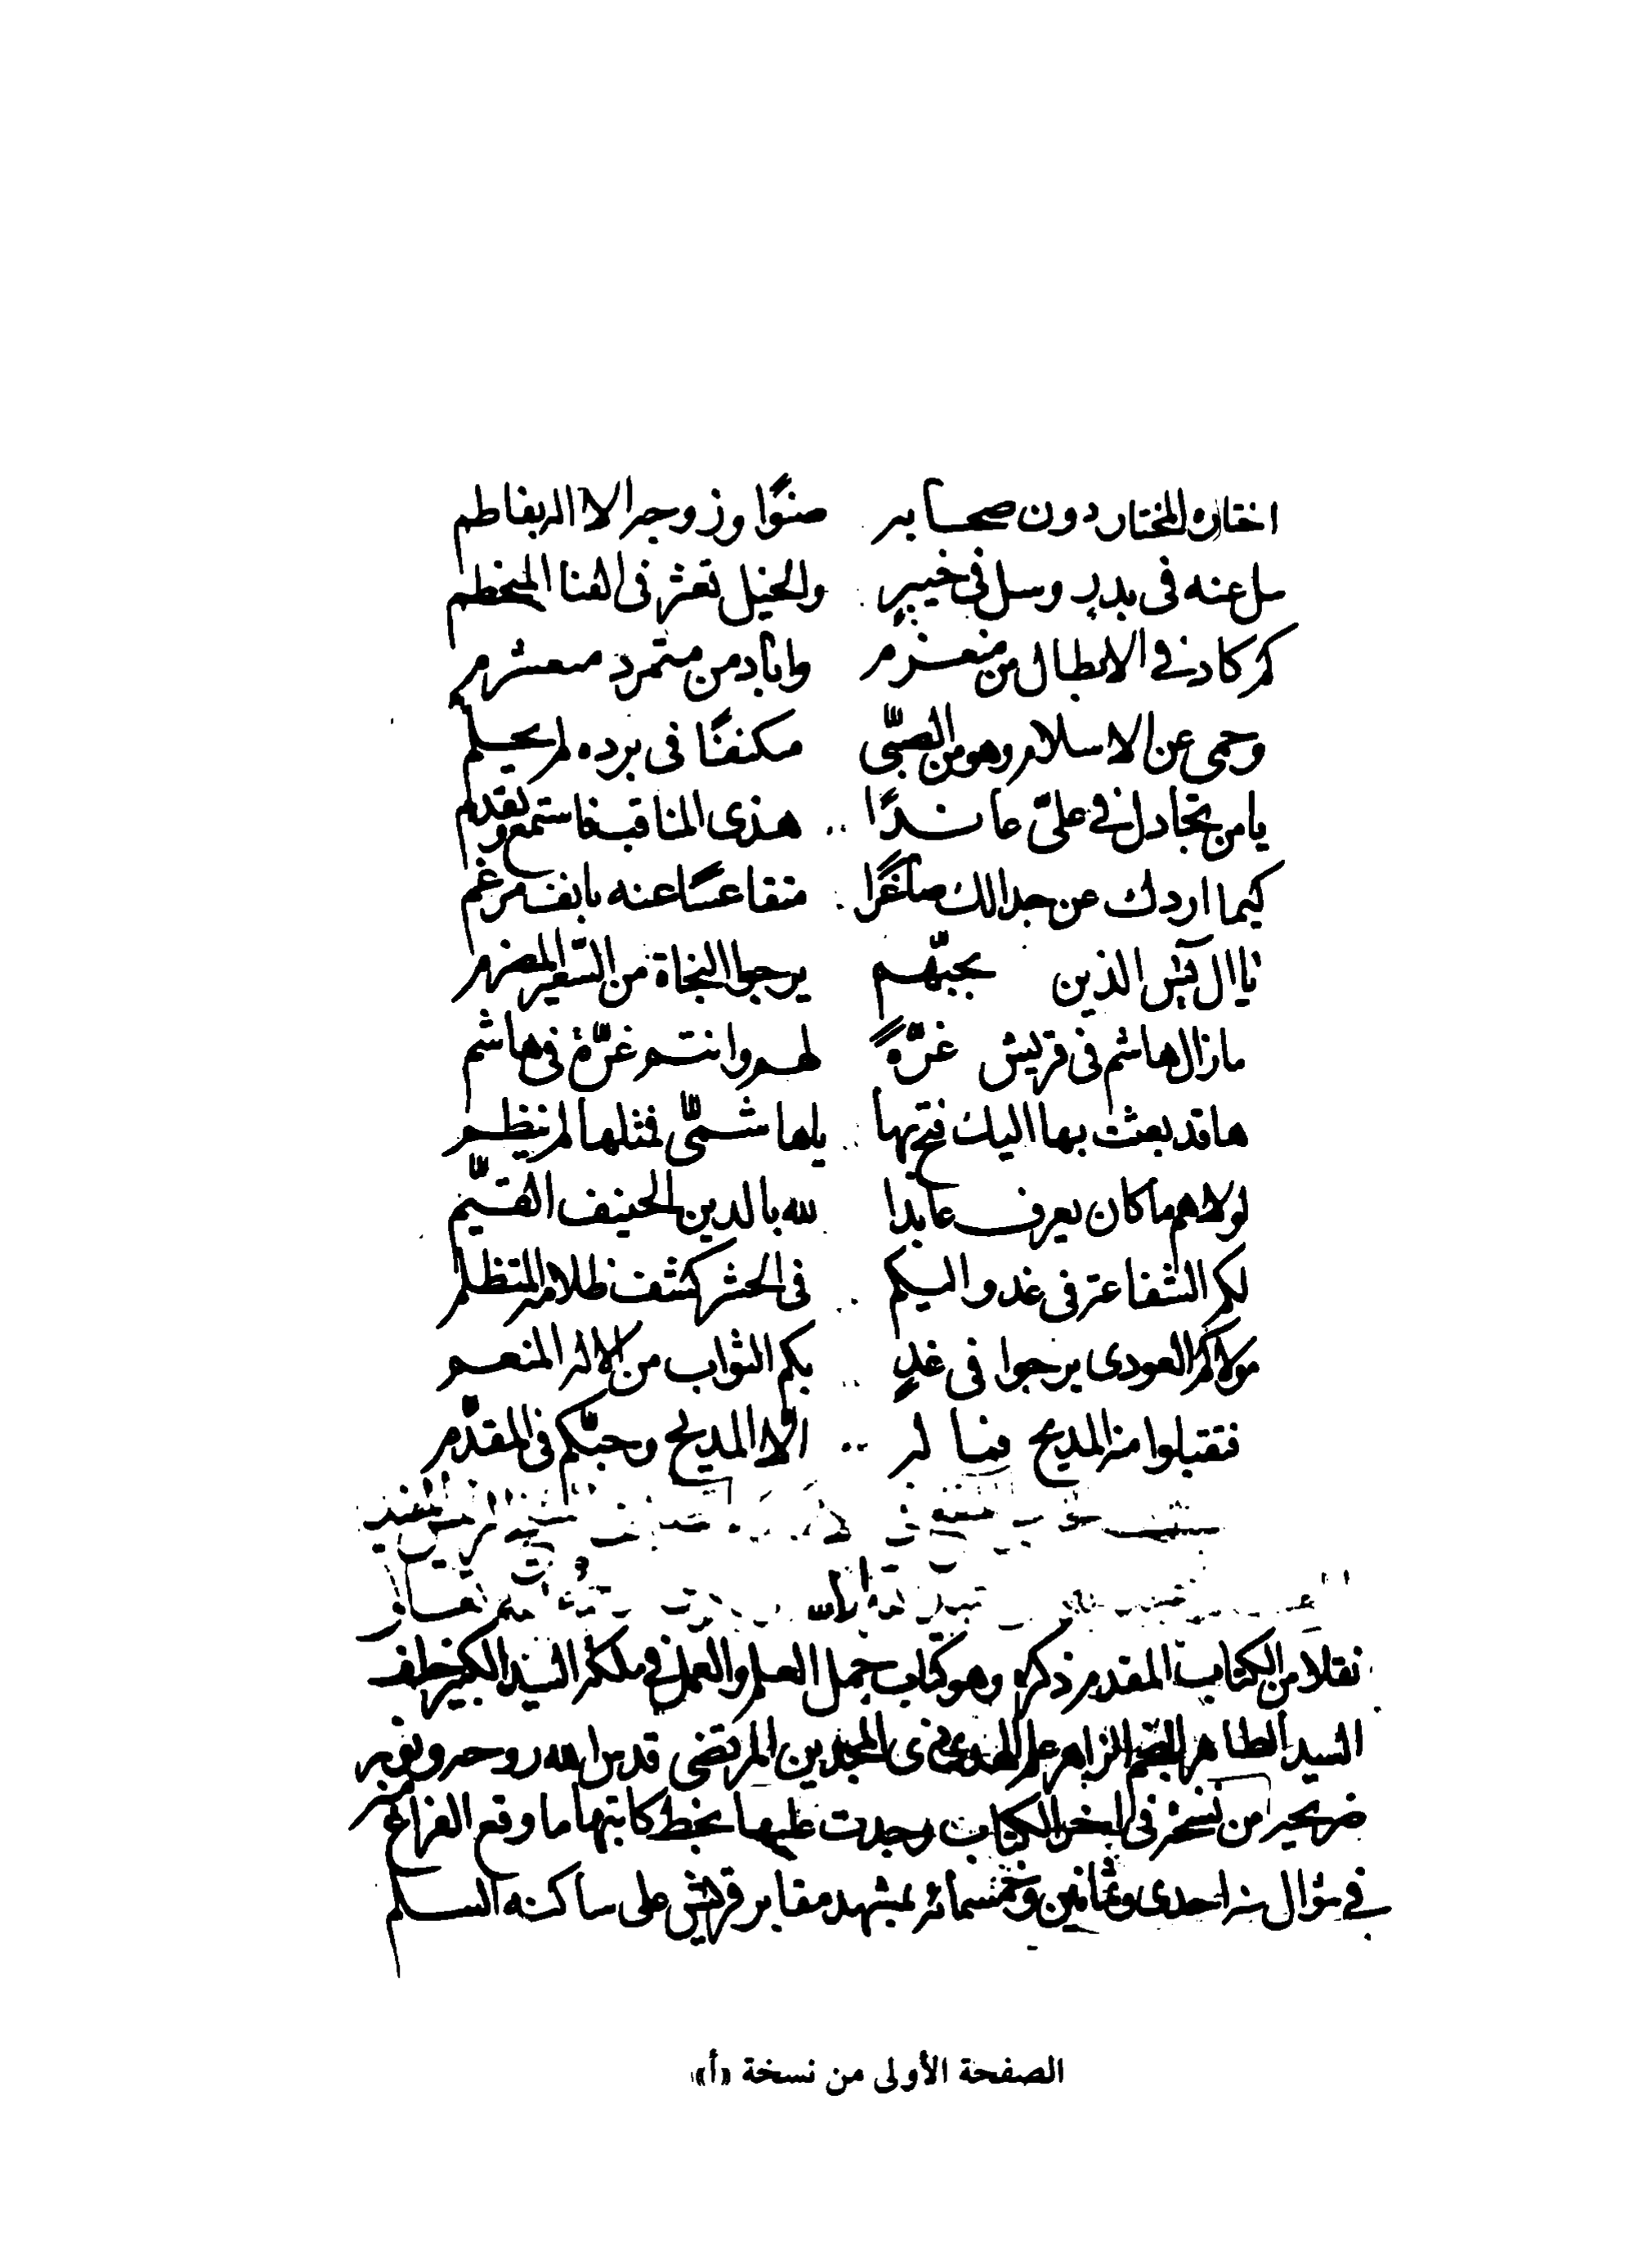 اختاره المختار دون صحابه صنوًا وزوجه الاله بفاطم
سل عنه فى بدرٍ وسل فى خيبرٍ والخيل تعثر فى القنا المتحطم
كم كاد فى الابطال من واباد من متمرد
وحمى عن الاسلام وهو من الصبّى مكنفًا فى برده لم يحلم
يا من يجادل فى علىّ عاندًا هذى المناقب فاستمع وتقدم
كيما اردك عن جدالك صاغرًا متقاعسًا عنه بانف مرغم
يا ال يٰس الذين بحبّهم يرجوا النجاة من السّعير المضرم
ما زال هاشم فى قريش غرّةً لهم وانتم غرّة فى هاشم
ها قد بعثت بها اليك فتحتها يا هاشمىّ فمثلها لم ينظم
لولاهم ما كان يعرف عابدا لله بالدين الحنيف القيّم
لكم الشفاعة فى غد واليكم فى الحشر كشف ظلامة المتظلم
مولاكم العودى يرجوا فى غدٍ بكم الثواب من الاله المنعم
فتقبلوا منه المديح فما له الّا المديح وحبّكم فى المقدم
نقلا من الكتاب المقدم ذكره وهو كتاب جمل العلم والعمل فى ملكة السيد الكبير خلف
السيد الطاهر النجم الزاهر علم الهدى ذى المجدين المرتضى قدس الله روحه ونور
ضريحه من نسخة فى اخر الكتاب وجدت عليها بخط كاتبها ما وقع الفراغ منه
فى شوال سنه احدى وثمانين وخمسمائه بمشهد مقابر قريش على ساكنه السلم
الصفحة الأولى من نسخة «أ»